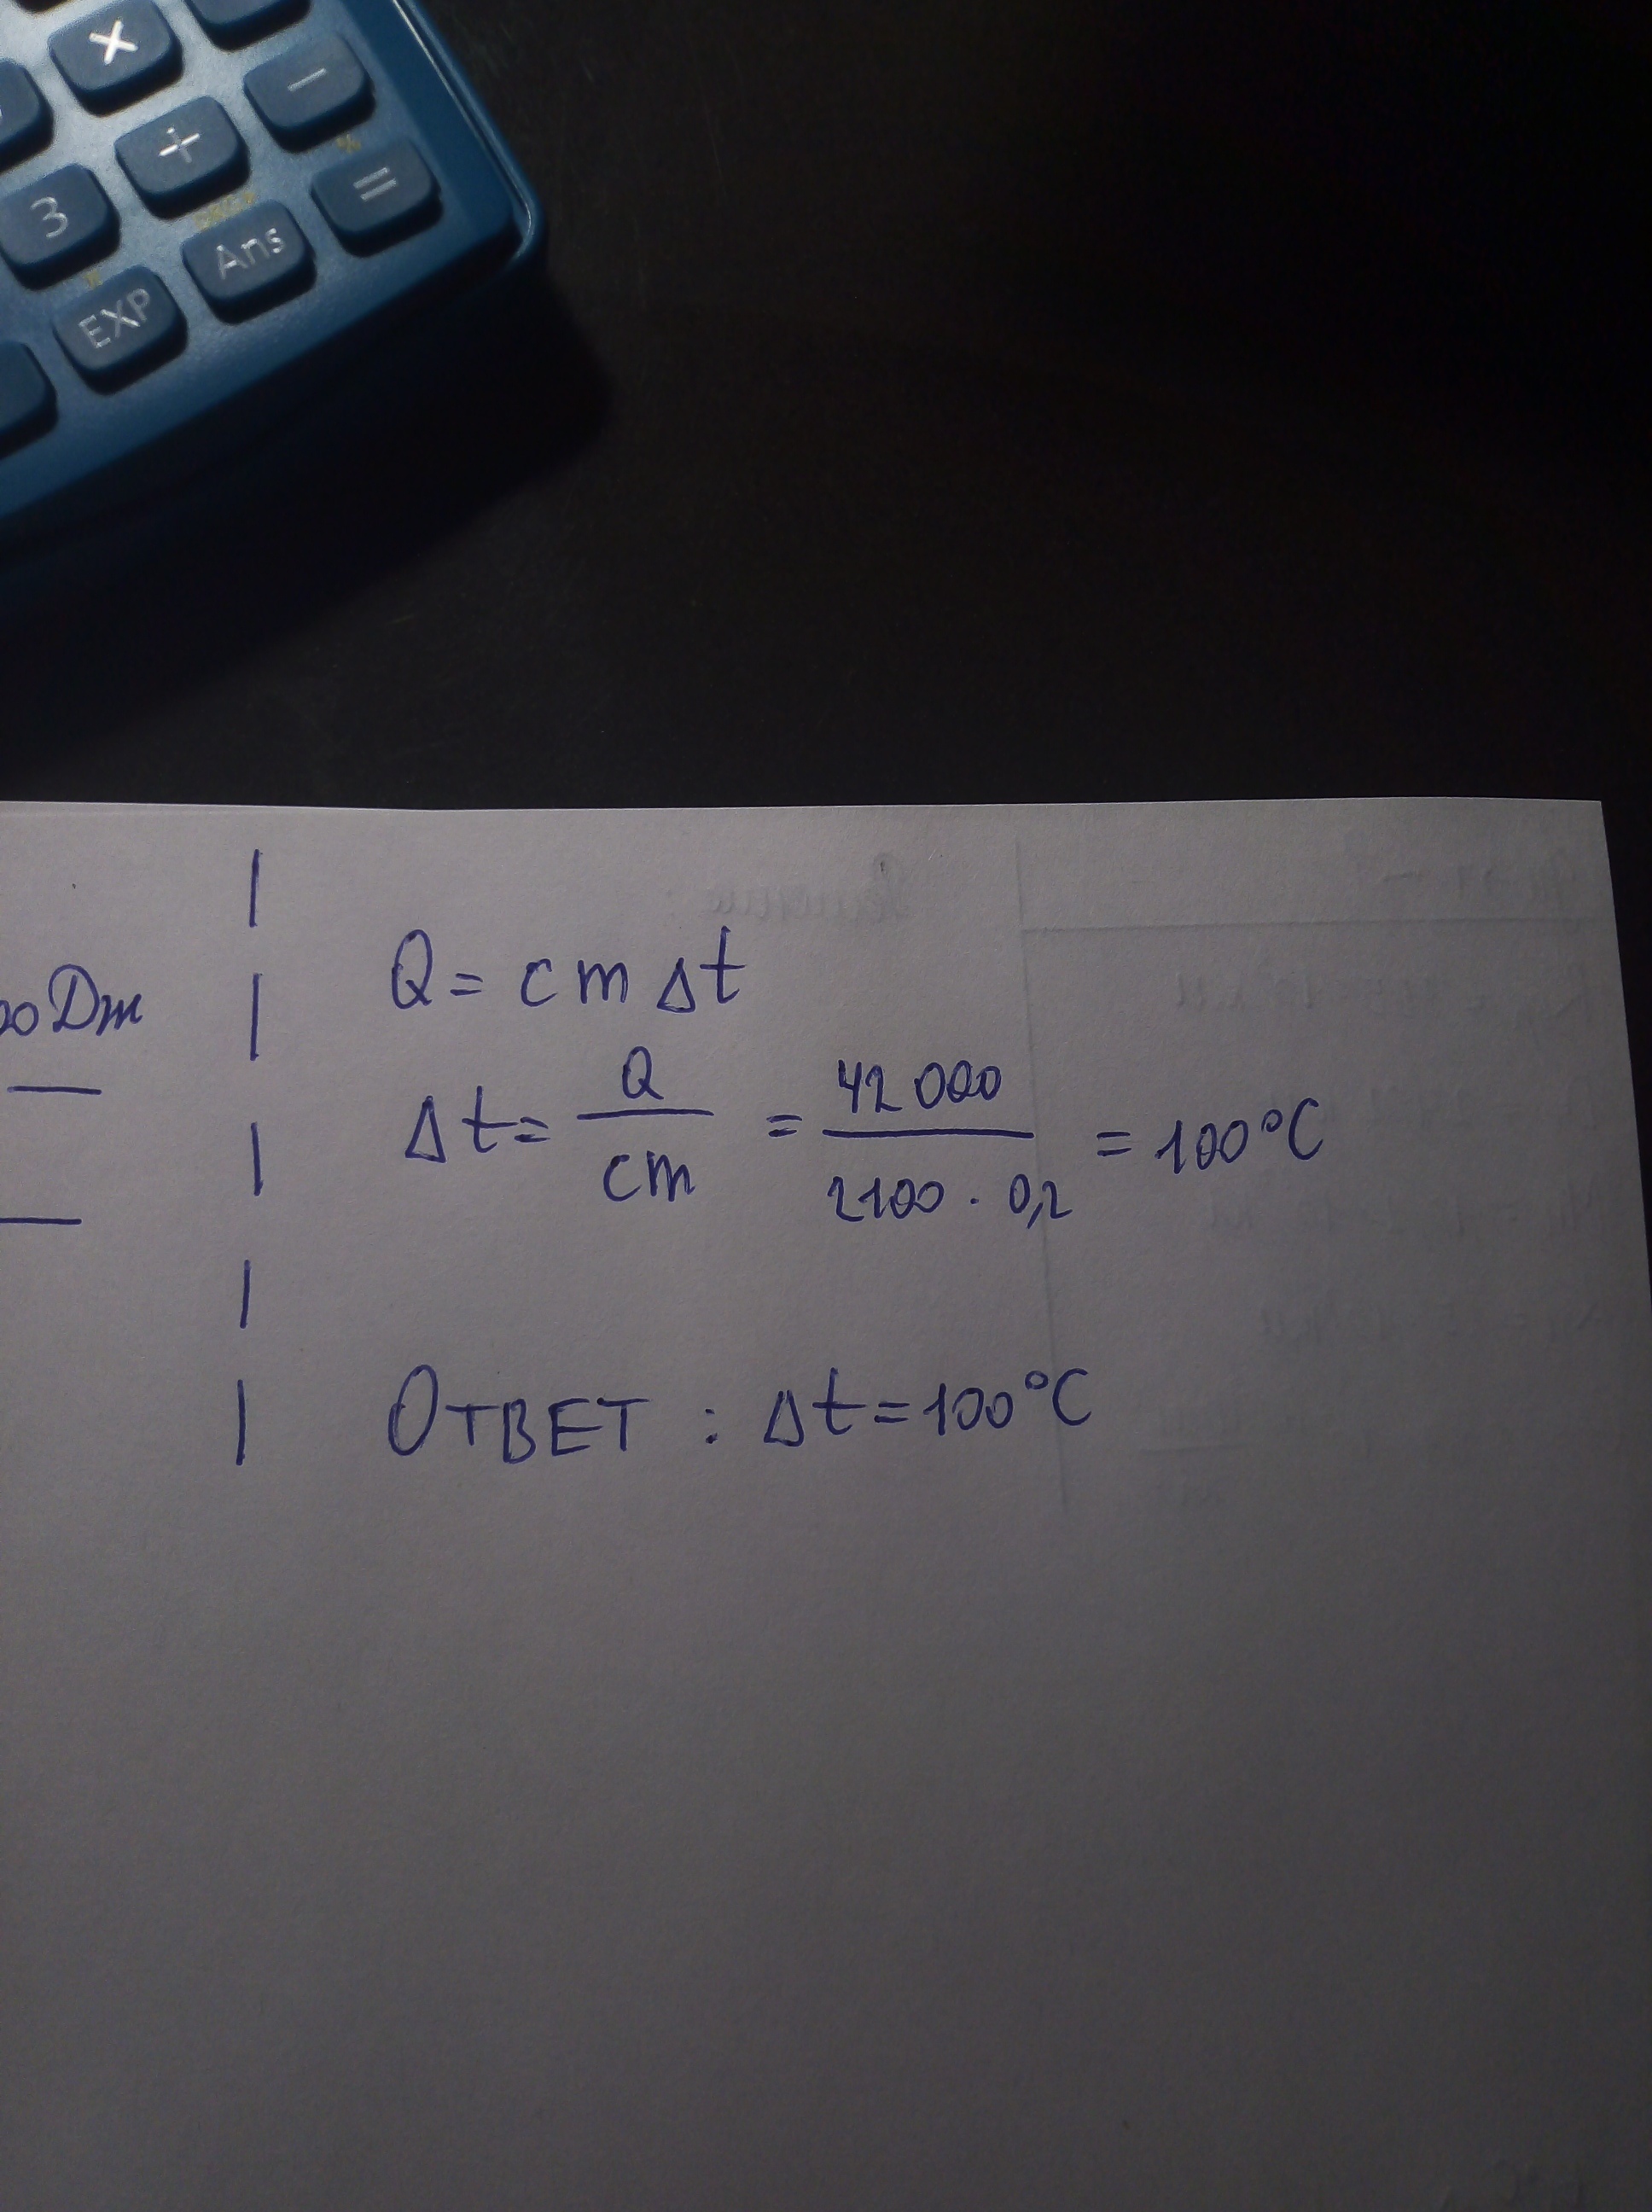 ×
−
+
=
3
Ans
EXP
Q = cm Δt
00 Дж
Δt = Q/cm = 42 000/2100 · 0,2 = 100°C
ОТВЕТ : Δt = 100°C